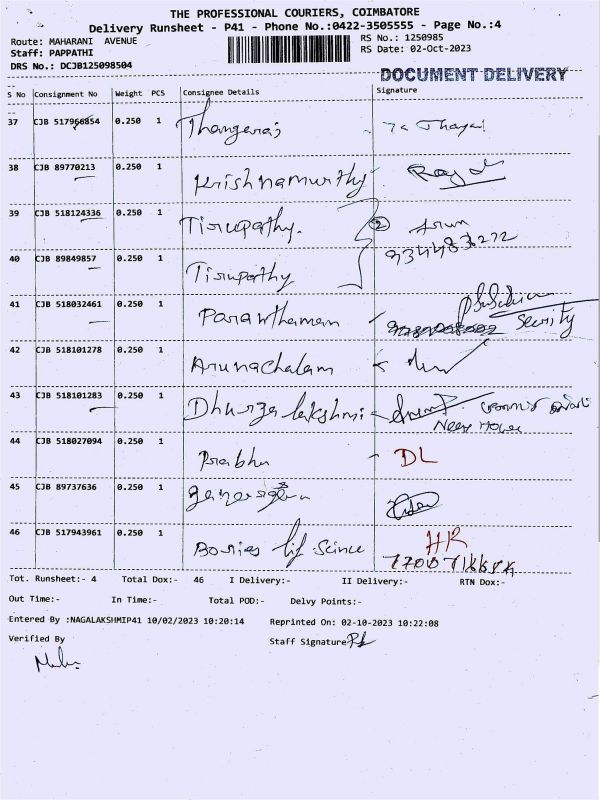 THE PROFESSIONAL COURIERS, COIMBATORE
Delivery Runsheet - P41 - Phone No.:0422-3505555 - Page No.:4
Route: MAHARANI AVENUE
RS No.: 1250985
Staff: PAPPATHI
RS Date: 02-Oct-2023
DRS No.: DCJB125098504
DOCUMENT DELIVERY
S No Consignment No Weight PCS Consignee Details Signature
37 CJB 517966854 0.250 1 Thangaraj
38 CJB 89770213 0.250 1 Krishnamurthy
39 CJB 518124336 0.250 1 Tirupathy. 2 Arun
40 CJB 89849857 0.250 1 Tirupathy
41 CJB 518032461 0.250 1 Paranthaman Security
42 CJB 518101278 0.250 1 Arunachalam
43 CJB 518101283 0.250 1 Dhurga lakshmi
44 CJB 518027094 0.250 1 Prabhu - DL
45 CJB 89737636 0.250 1
46 CJB 517943961 0.250 1 Bories lif Scince HR
Tot. Runsheet:- 4 Total Dox:- 46 I Delivery:- II Delivery:- RTN Dox:-
Out Time:- In Time:- Total POD:- Delvy Points:-
Entered By :NAGALAKSHMIP41 10/02/2023 10:20:14 Reprinted On: 02-10-2023 10:22:08
Verified By Staff Signature